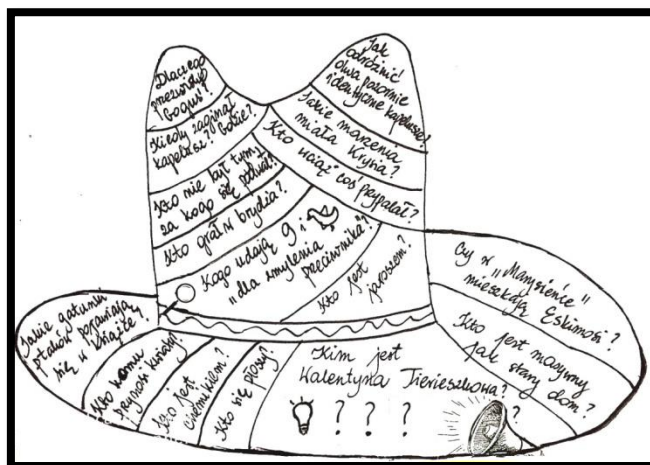 Dlaczego
przezwisko
"Boguś"?
Kiedy zaginął
kapelusz? Gdzie?
Kto nie był tym,
za kogo się podawał?
Kto grał w brydża?
Kogo udają 9 i
"dla zmylenia
przeciwnika"?
Jak
odróżnić
dwa pozornie
identyczne kapelusze?
Jakie marzenia
miała Krysia?
Kto wciąż coś przypalał?
Kto jest
jaroszem?
Czy w
"Marysieńce"
mieszkają Eskimosi?
Kto jest masywny
jak stary dom?
Jakie gatunki
ptaków pojawiają
się w książce?
Kto komu
przynosi kwiaty?
Kto jest
Kto się płoszy?
Kim jest
Walentyna Tierieszkowa?
? ? ? ?